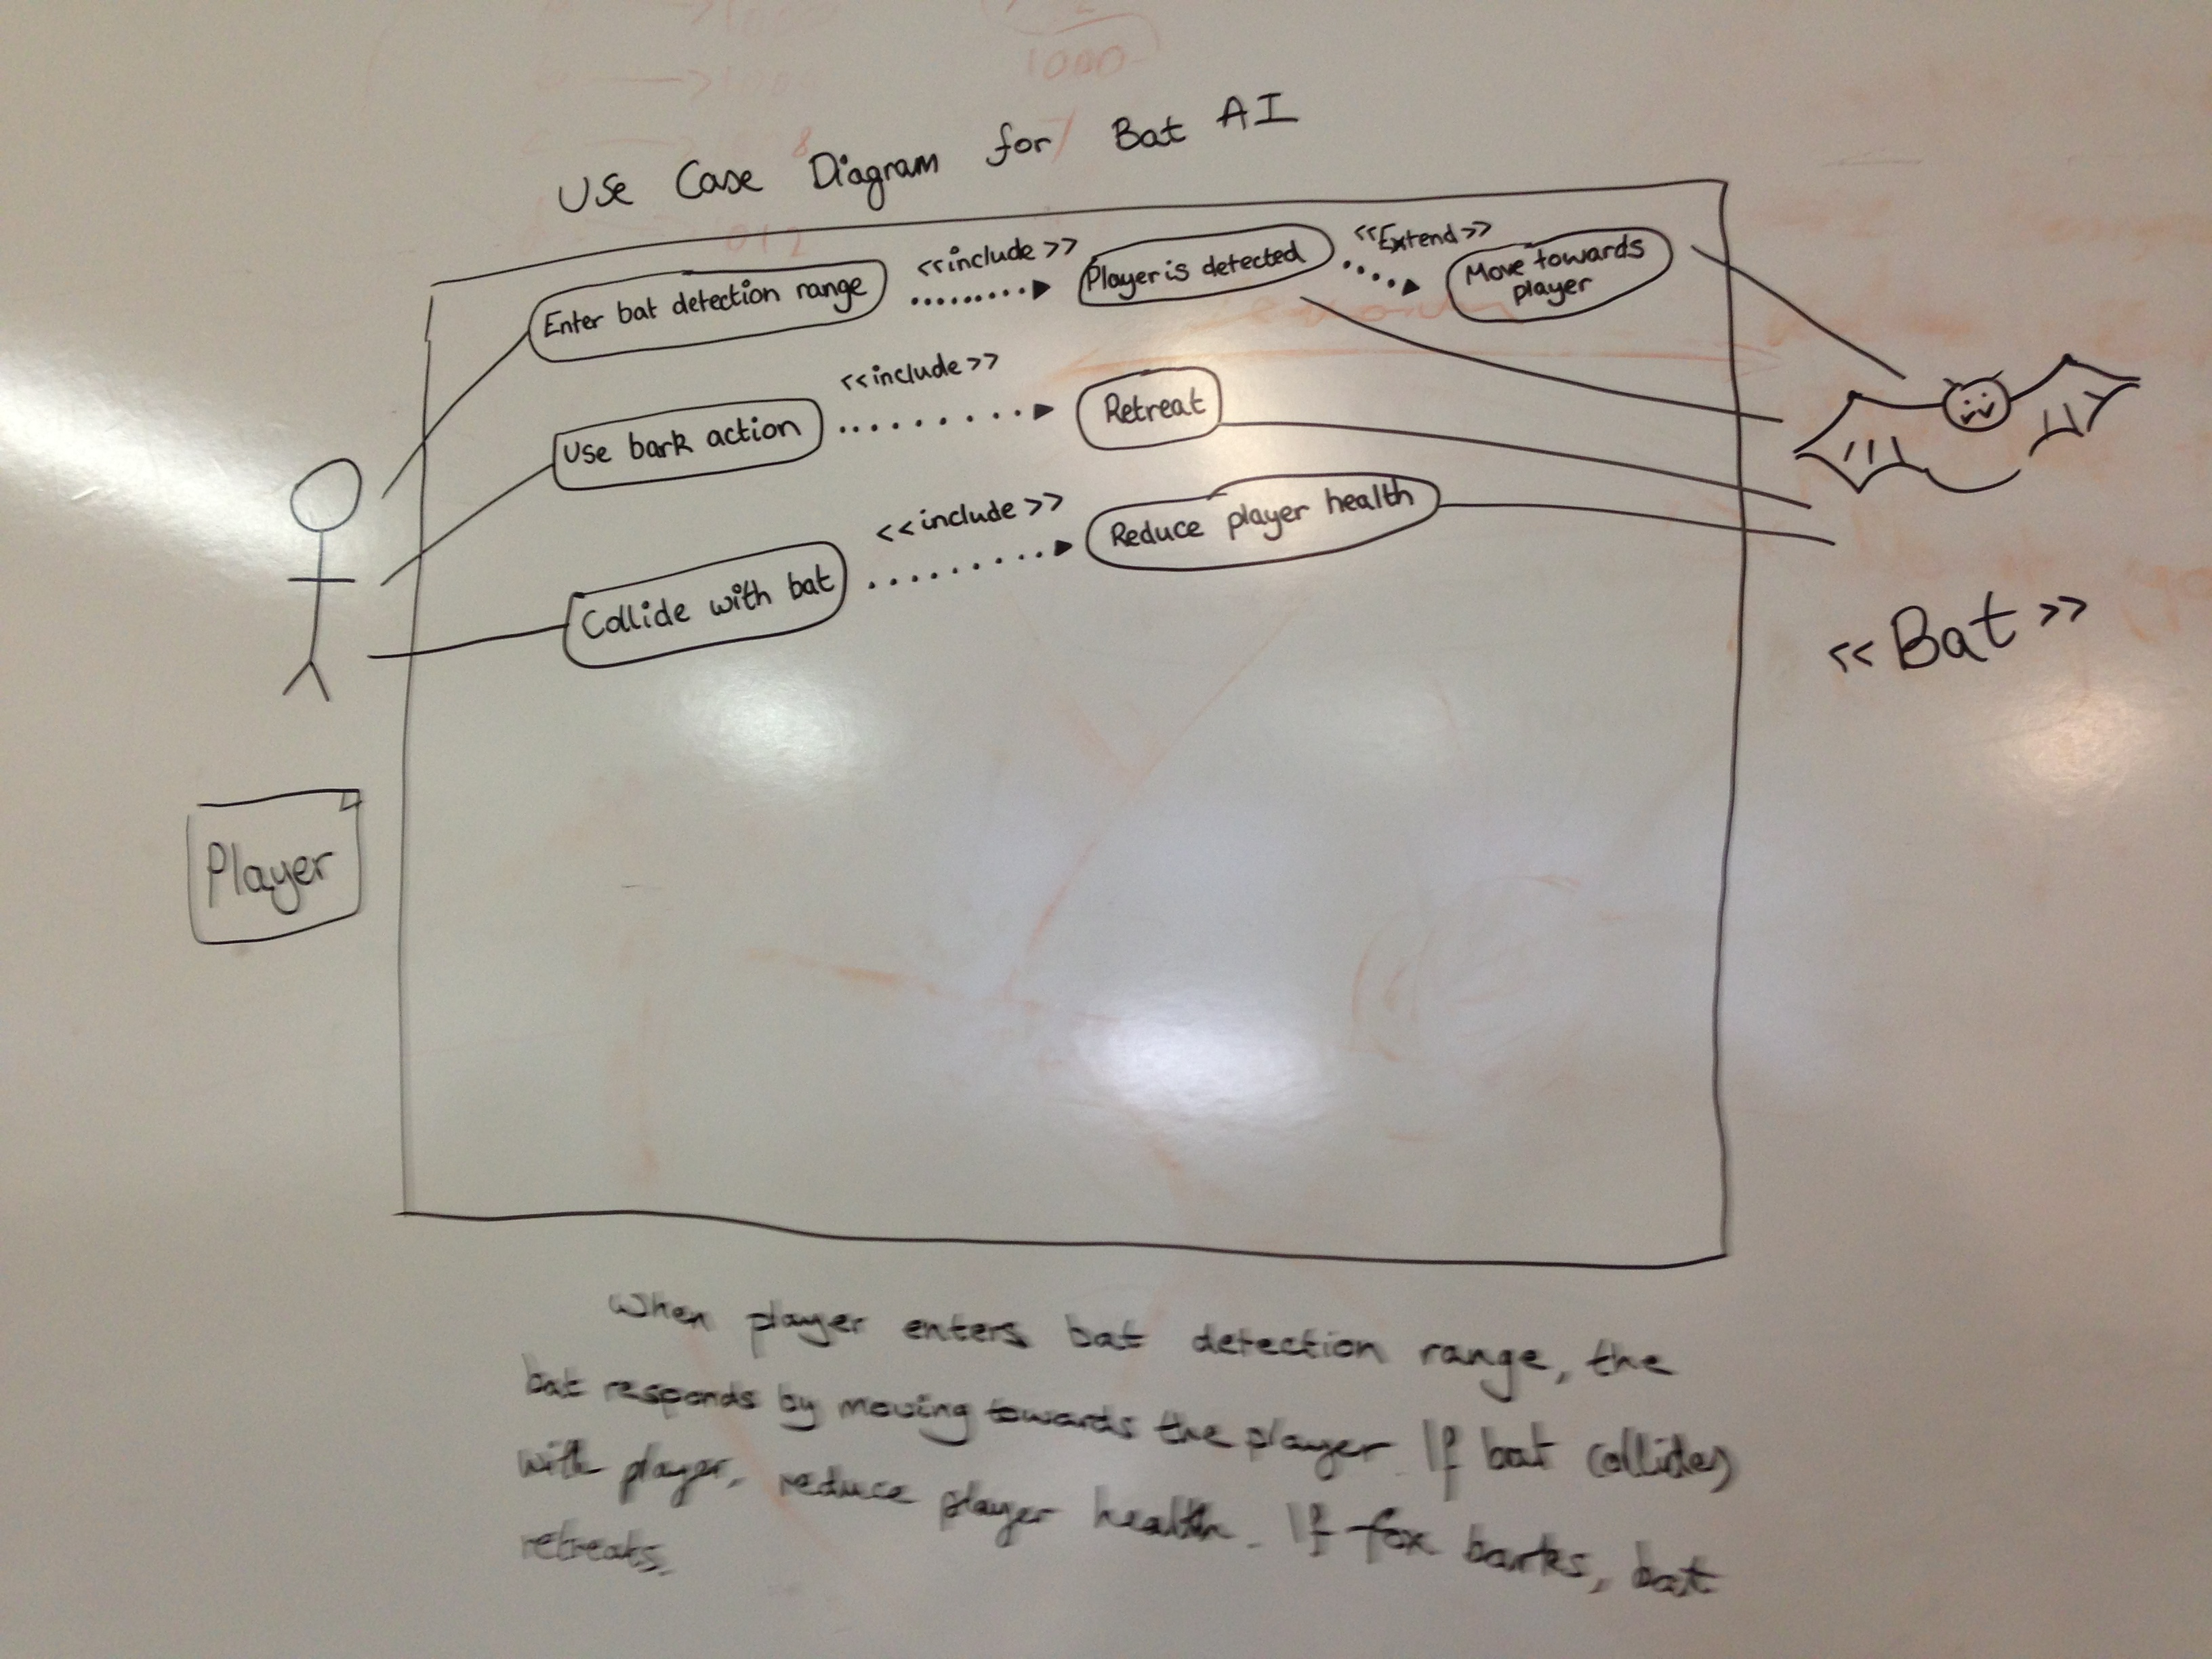 Use Case Diagram for Bat AI
<<include>>
<<Extend>>
Enter bat detection range
Player is detected
Move towards
player
<<include>>
Use bark action
Retreat
<<include>>
Collide with bat
Reduce player health
<<Bat>>
Player
When player enters bat detection range, the
bat responds by moving towards the player. If bat collides
with player, reduce player health. If fox barks, bat
retreats.
1000